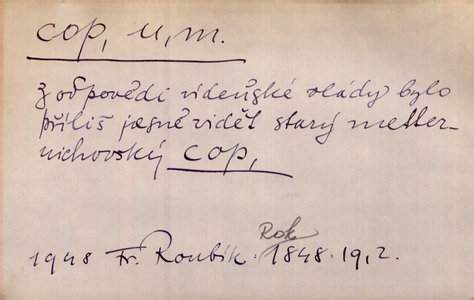 cop, u, m.
Z odpovědi vídeňské vlády bylo
příliš jasně vidět starý metter-
nichovský cop,
1948 Fr. Roubík. Rok 1848. 19, 2.